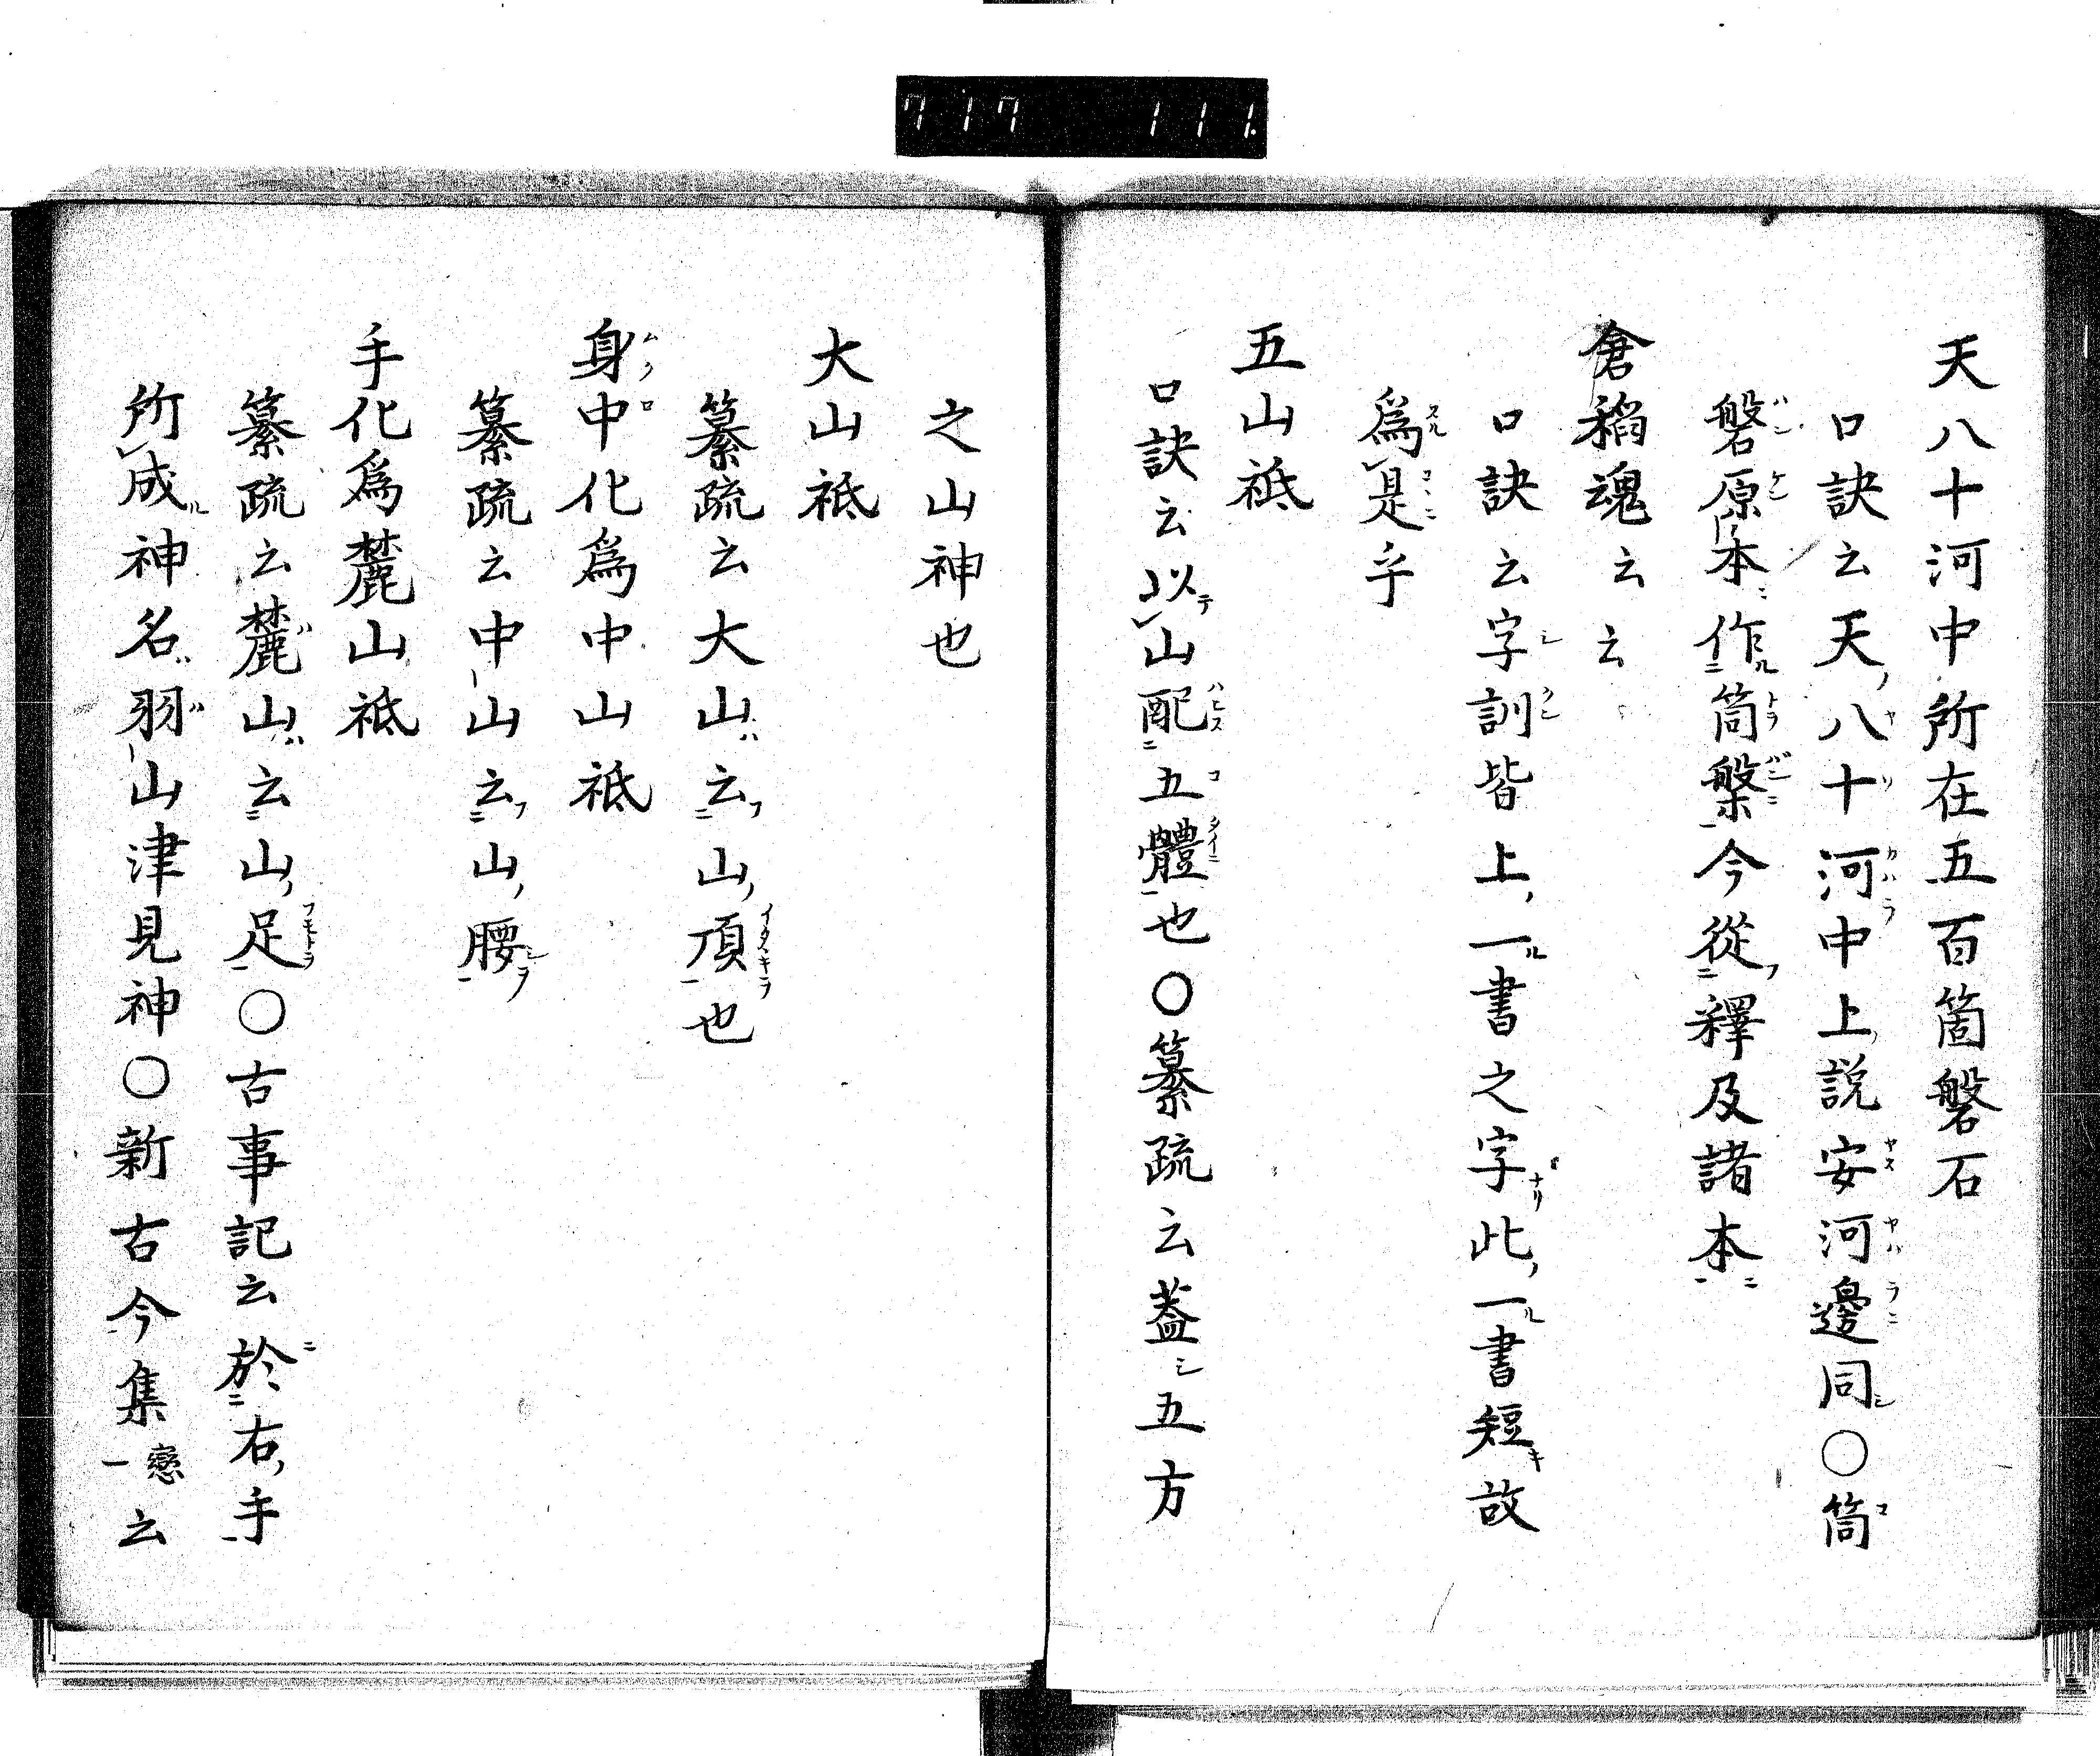 717 111
天八十河中所在五百箇磐石
口訣云天八十河中上説安河邊同〇筒
磐原本作筒槃今從釋及諸本
倉稻魂云云
口訣云字訓皆上一書之字此一書短故
爲是乎
五山祇
口訣云以山配五體也〇纂疏云蓋五方
之山神也
大山祇
纂疏云大山云山頂也
身中化爲中山祇
纂疏云中山云山腰
手化爲麓山祇
纂疏云麓山云山足〇古事記云於右手
所成神名羽山津見神〇新古今集戀一云